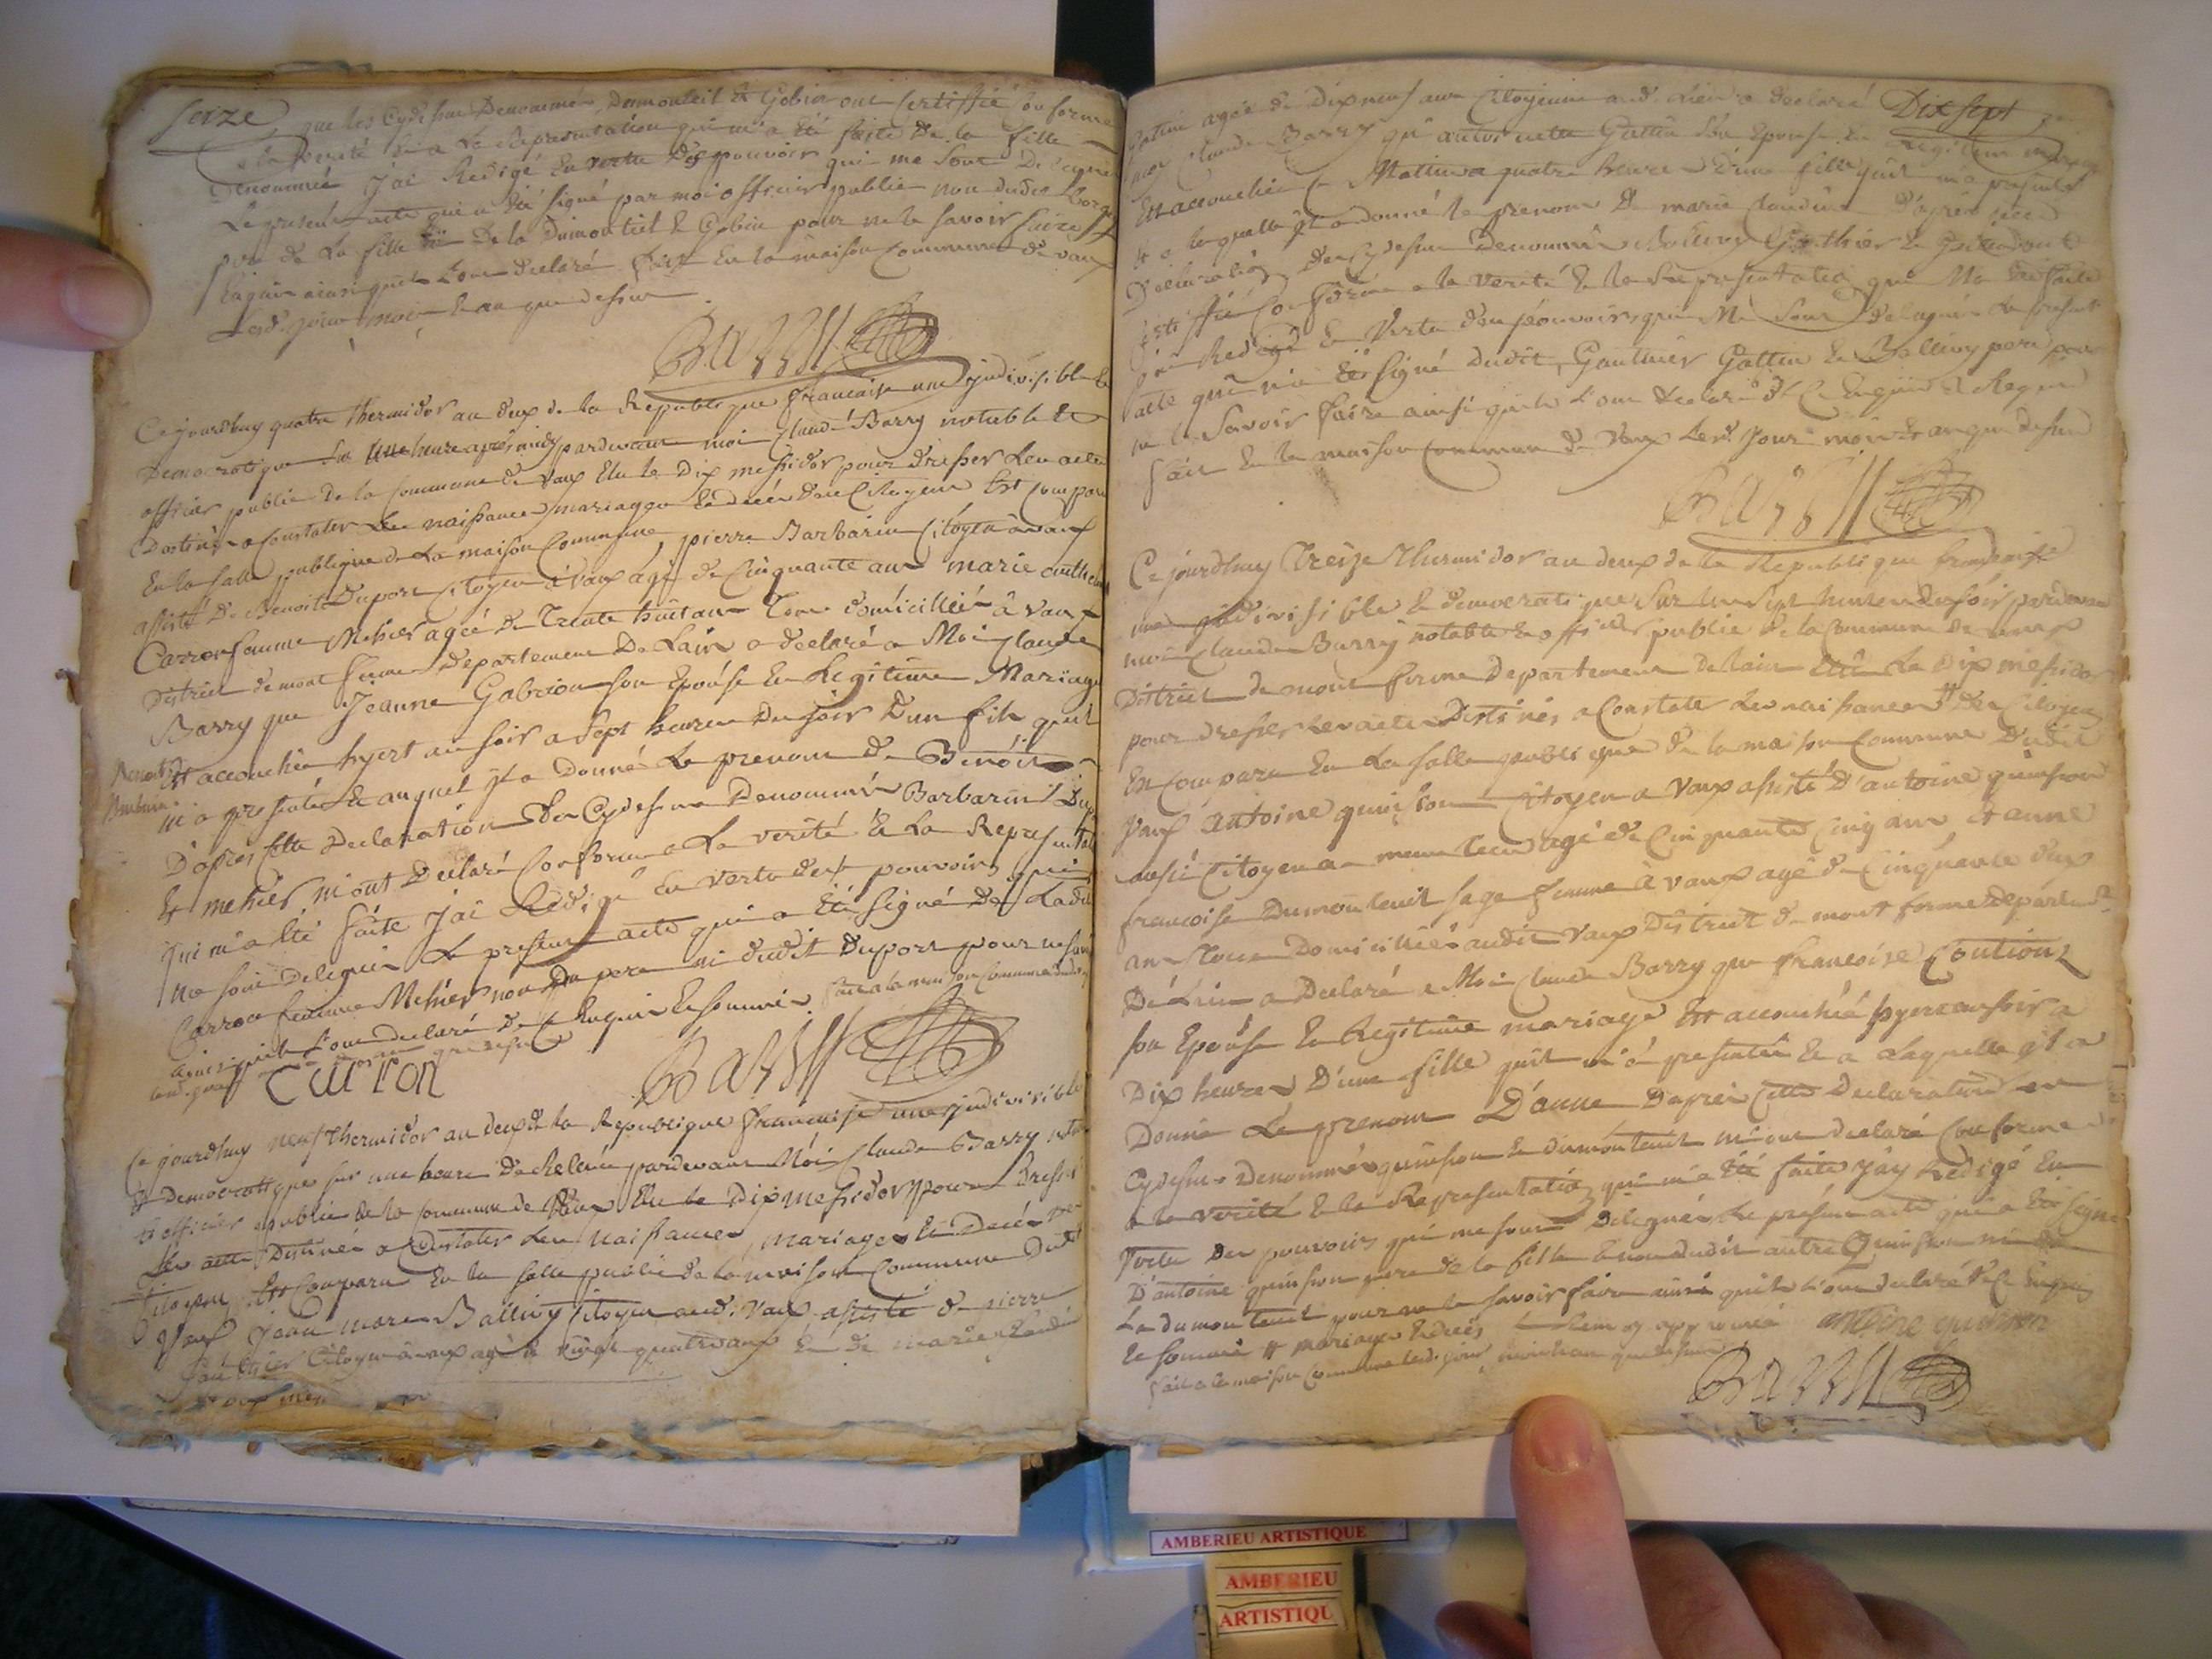 Seize
que les Cydessus Denommés Dumonteil et Gobin ont certiffié Conforme
a la verité et a la Representation qui m'a été faite de la fille
Denommée J'ai Redigé En vertu des pouvoirs qui me sont Delegués
Le present acte qui a été signé par moi officier public non dudit
pere de la fille ni De la Dumonteil et Gobin pour ne le savoir faire
Enquis ainsi quils L'ont declaré fait En la maison Commune de vaux
Lesd. jour mois et an que dessus
Barry
Ce jourdhuy quatre thermidor an deux de la Republique francaise une jndivisible et
Democratique sur une heure apres midy pardevant moi Claude Barry notable et
officier public De la Commune de Vaux Elu le Dix messidor pour dresser Les actes
Destinés a Constater Les naissances mariages et decés des Citoyens Est Comparu
En la salle publique de La maison Commune pierre Barbarin Citoyen a vaux
assisté de Benoit Duport Citoyen a vaux agé de Cinquante ans marie
Carron femme Mehier agée de Trente huit ans Tous domicilliés a Vaux
District de mont ferme Departement De Lain a declaré a Moi Claude
Barry que Jeanne Gabrion son Epouse En Legitime Mariage
Est accouchée hyert au soir a Sept heures Du soir D'un fils quil
Benoit
Barbarin
m'a presenté Et auquel jl a Donné Le prenom de Benoit
D'apres Cette Declaration des Cydessus Denommés Barbarin
Et mehier m'ont Declaré Conforme a La verité et La
Qui m'a été faite J'ai Redigé En vertu des pouvoirs qui
me sont Delegués Le present acte qui a été signé De Ladite
Carron femme Mehier non Du pere ni dudit Duport pour
ainsi quils L'ont declaré de Ce Enquis Et sommés fait a la maison Commune
Carron
Barry
Ce jourdhuy neuf thermidor an deux de la Republique francaise une jndivisible
Et Democratique sur une heure De Relevée pardevant Moi Claude Barry
et officier public de la Commune de Vaux Elu le Dix messidor pour Dresser
Les actes Destinés a Constater Les naissances mariages et Decés des
Citoyens Est Comparu En la salle public de la maison Commune Dudt
Vaux Jean marc Ballivy Citoyen aud. Vaux assisté de pierre
Gauthier Citoyen a vaux agé de vingt quatre ans Et de marie Claudine
Dix sept
agée de Dix neuf ans Citoyenne aud. Lieu a declaré
moy Claude Barry qu'antoinette Gattin son Epouse En Legitime mariage
Est accouchée Ce Matin a quatre heures D'une fille quil m'a presenté
et a laquelle jl a donné le prenom De marie Claudine D'apres
Declaration Des Cydessus Denommés Ballivy Gauthier Et Gattin
Certiffié Conforme a la verité Et la Representation qui M'a été faite
j'ai Redigé En Vertu des pouvoirs qui Me Sont delegués Le present
acte qui n'a été signé dudit Gauthier Gattin Et Ballivy pere pour
ne le Savoir faire ainsi quils L'ont declaré de Ce Enquis Et Requis
fait En la maison Commune de Vaux Lesd. Jour mois et an que dessus
Barry
Ce jourdhuy Treize Thermidor an deux de la Republique francaise
une jndivisible et democratique sur Les Sept heures du soir pardevant
moi Claude Barry notable et officier public De la Commune De vaux
District de mont ferme Departement de lain Elu Le Dix messidor
pour dresser Les actes Destinés a Constater Les naissances # des Citoyens
Est Comparu En La salle publique de la maison Commune Dudit
Vaux Antoine quinson Citoyen a Vaux assisté D'antoine quinson
aussi Citoyen a meme lieu agé de Cinquante Cinq ans Et anne
francoise Dumonteuil sage femme a vaux agé de Cinquante deux
ans Tous Domicilliés audit Vaux District de mont ferme Departemt
De Lain a Declaré a Moi Claude Barry que francoise Coutions
son Epouse En Legitime mariage Est accouchée hyere au soir a
Dix heures D'une fille quil m'a presentée Et a Laquelle jl a
Donné Le prenom D'anne D'apres Cette Declaration
Cydessus Denommés quinson Et dumonteuil m'ont declaré Conforme
a la verité Et la Representation qui m'a été faite J'ay Redigé En
Vertu Des pouvoirs qui me sont Delegués Le présent acte qui a été signé
D'antoine quinson pere de la fille Et non dudit autre Quinson ni de
La dumonteuil pour ne le savoir faire ainsi quils L'ont declaré de Ce Enquis
Et sommés # mariages Et decés approuvé antoine quinson
fait a la maison Commune Lesd. jour mois et an que dessus
Barry
AMBERIEU ARTISTIQUE
AMBERIEU
ARTISTIQU